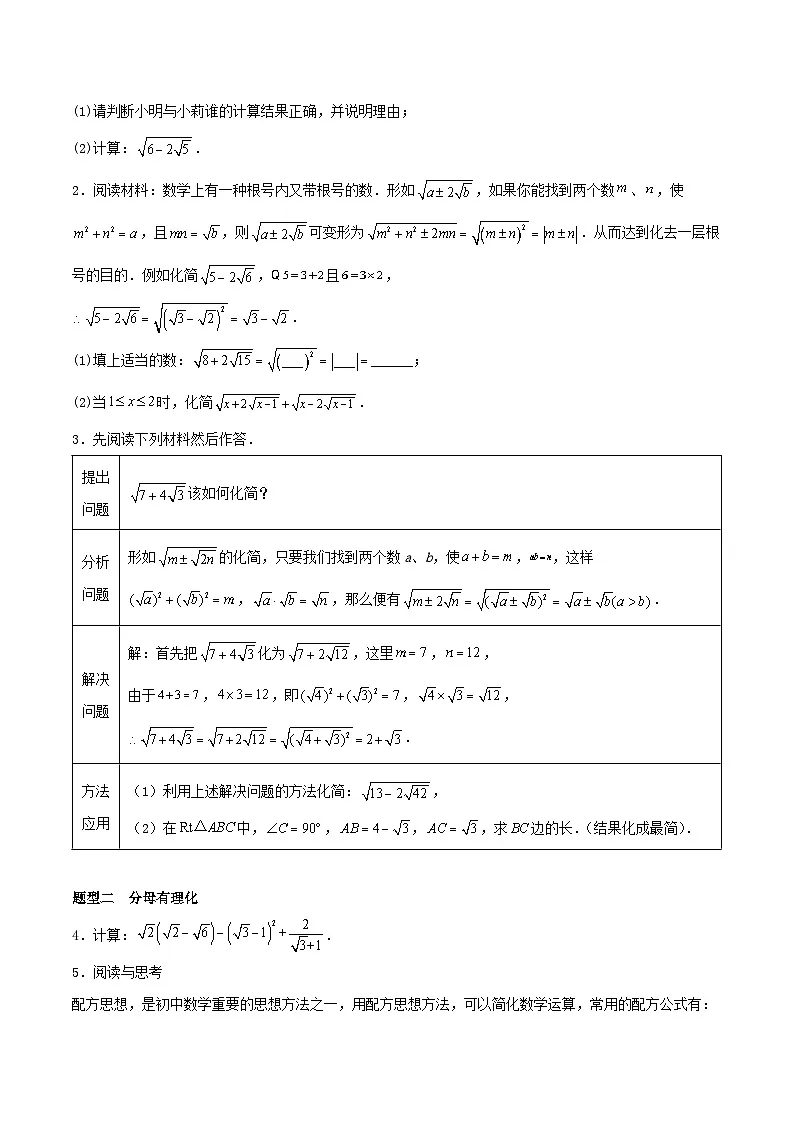 (1)请判断小明与小莉谁的计算结果正确，并说明理由；
(2)计算：√(6－2√5)．
2．阅读材料：数学上有一种根号内又带根号的数．形如√(a±2√b)，如果你能找到两个数m、n，使
m²＋n²＝a，且mn＝√b，则√(a±2√b)可变形为√(m²＋n²±2mn)＝√((m±n)²)＝|m±n|．从而达到化去一层根
号的目的．例如化简√(5－2√6)，Q 5＝3＋2且6＝3×2，
∴√(5－2√6)＝√((√3－√2)²)＝√3－√2．
(1)填上适当的数：√(8＋2√15)＝√((___)²)＝|___|＝______；
(2)当1≤x≤2时，化简√(x＋2√(x－1))＋√(x－2√(x－1))．
3．先阅读下列材料然后作答．
提出
问题
√(7＋4√3)该如何化简？
分析
问题
形如√(m±√(2n))的化简，只要我们找到两个数a、b，使a＋b＝m，ab＝n，，这样
(√a)²＋(√b)²＝m，√a·√b＝√n，那么便有√(m±2√n)＝√((√a±√b)²)＝√a±√b(a＞b)．
解决
问题
解：首先把√(7＋4√3)化为√(7＋2√12)，这里m＝7，n＝12，
由于4＋3＝7，4×3＝12，即(√4)²＋(√3)²＝7，√4×√3＝√12，
∴√(7＋4√3)＝√(7＋2√12)＝√((√4＋√3)²)＝2＋√3．
方法
应用
（1）利用上述解决问题的方法化简：√(13－2√42)，
（2）在Rt△ABC中，∠C＝90°，AB＝4－√3，AC＝√3，求BC边的长．（结果化成最简）．
题型二 分母有理化
4．计算：√2(√2－√6)－(√3－1)²＋2/(√3+1)．
5．阅读与思考
配方思想，是初中数学重要的思想方法之一，用配方思想方法，可以简化数学运算，常用的配方公式有：